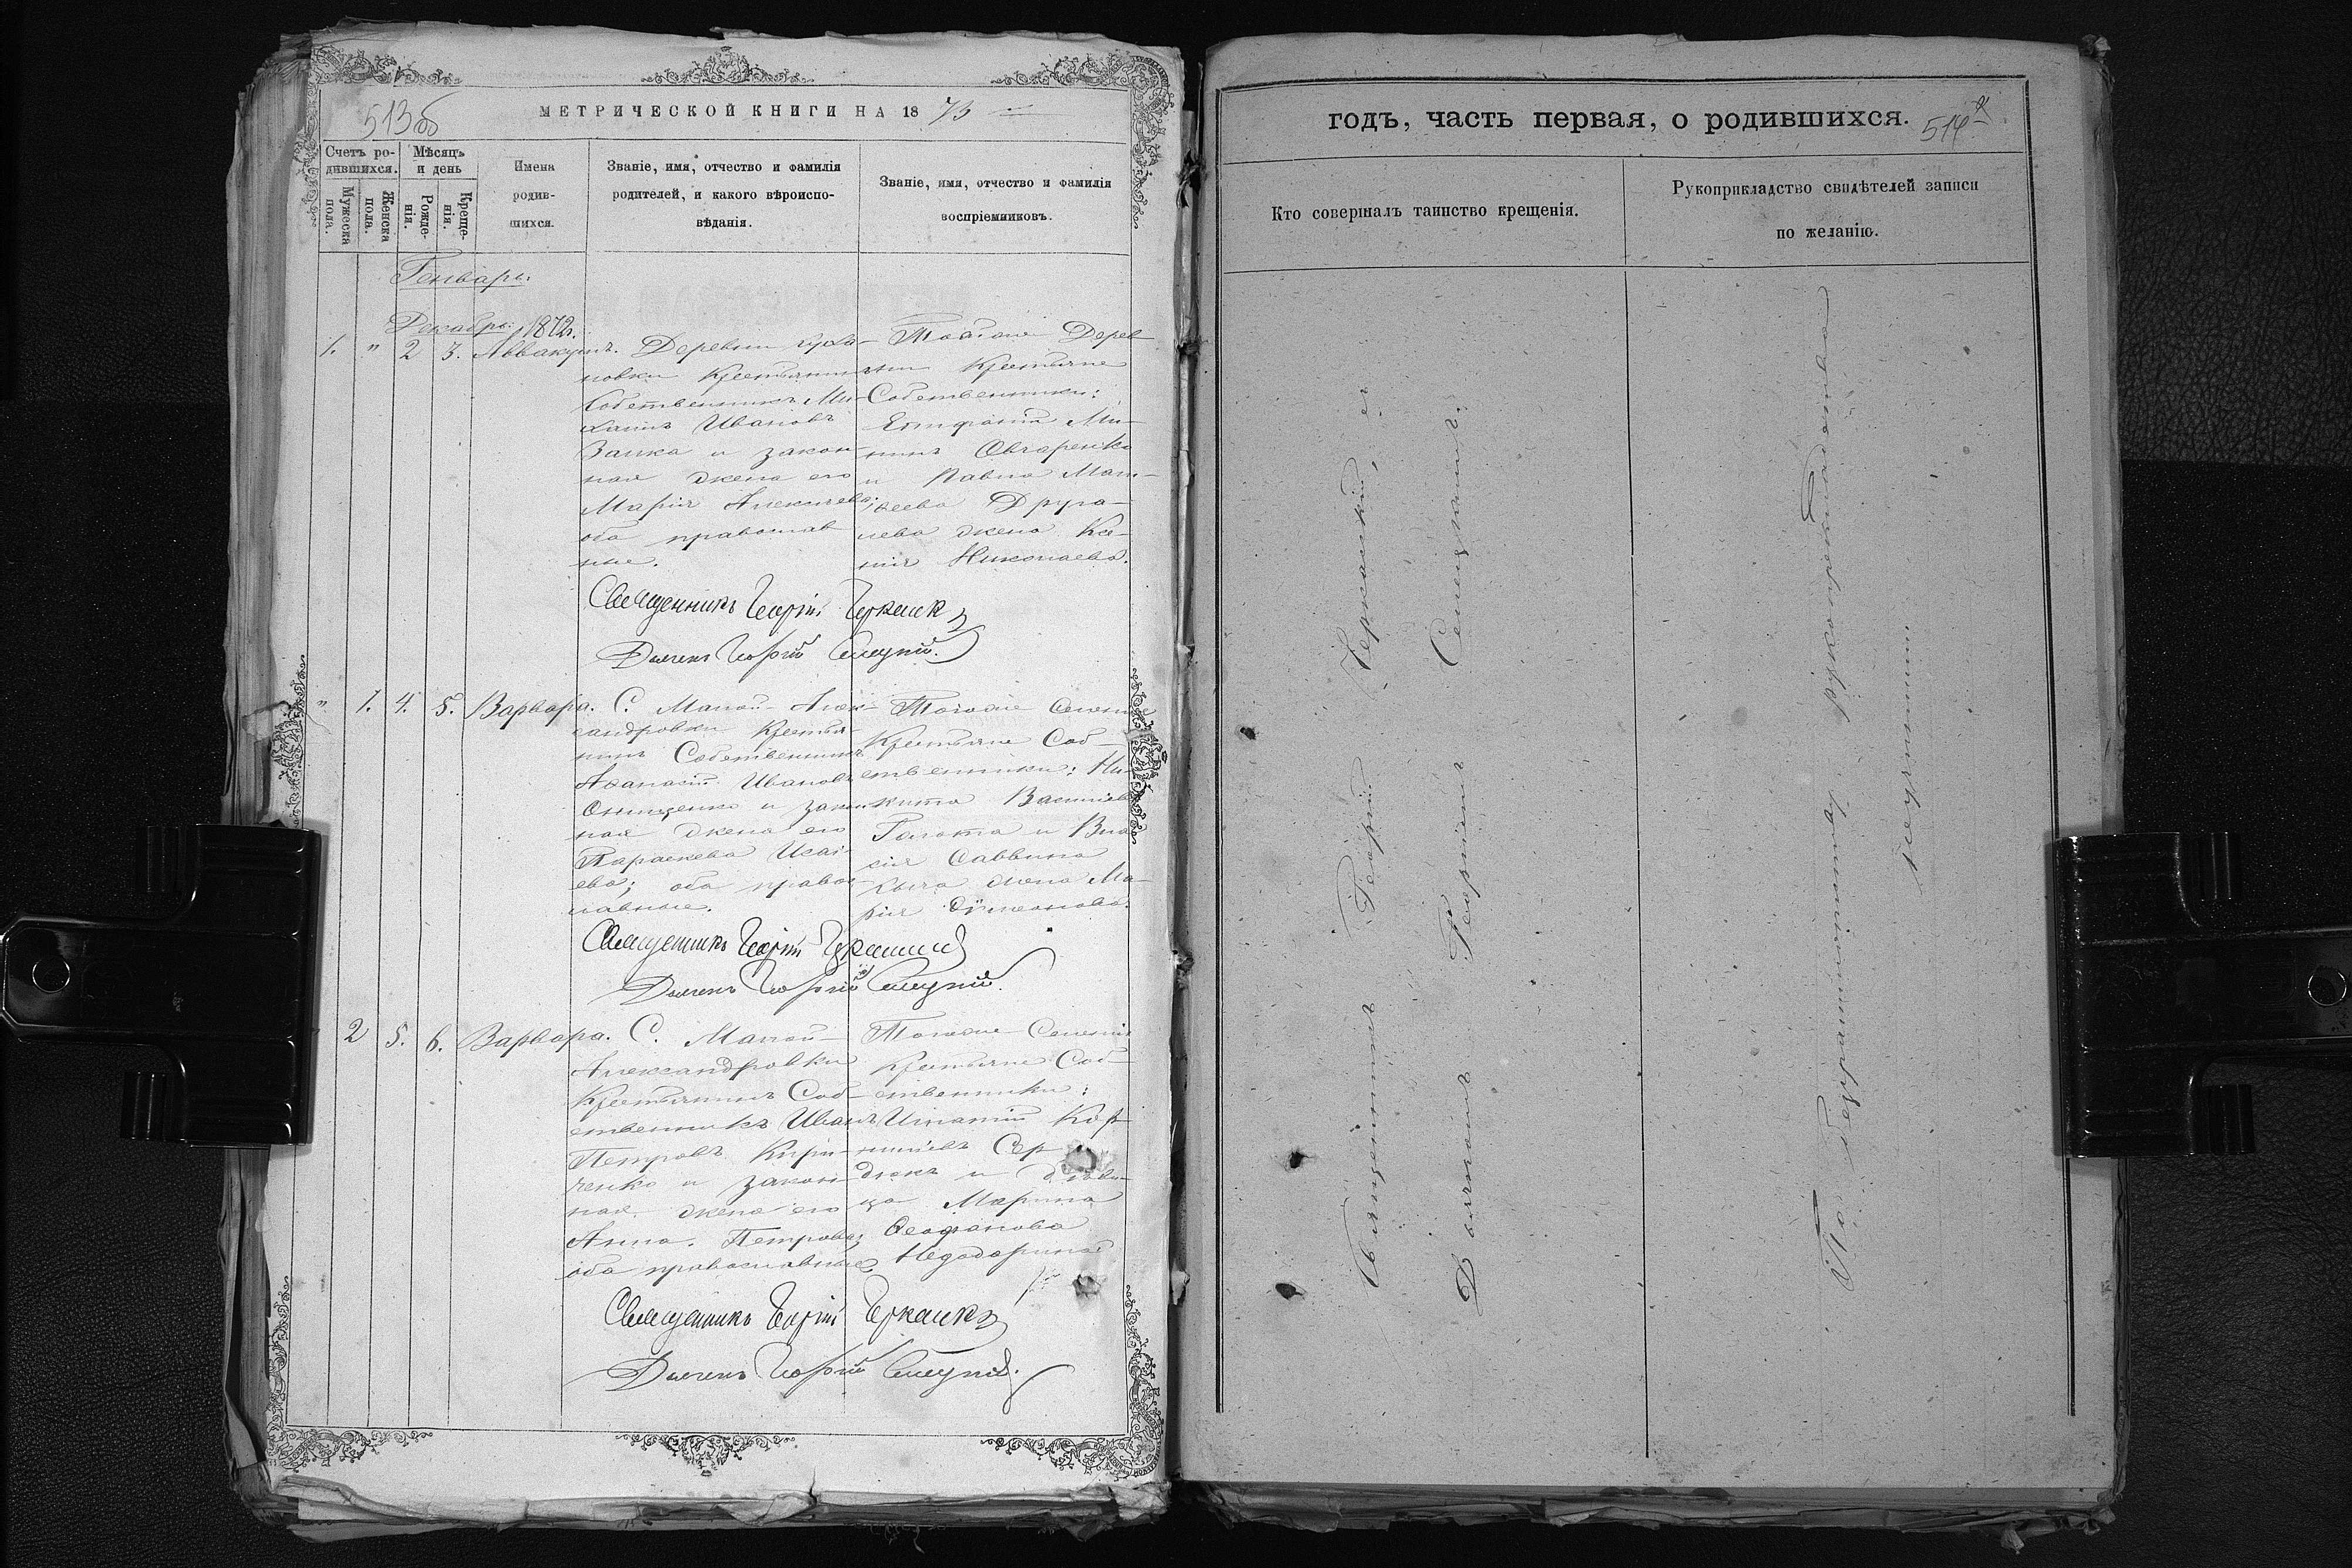 513об
МЕТРИЧЕСКОЙ КНИГИ НА 1873
Счетъ ро-
дившихся.
Мужеска
пола.
Женска
пола.
Мѣсяцъ
и день
Рожде-
нія.
Креще-
нія.
Имена
родив-
шихся.
Званіе, имя, отчество и фамилія
родителей, и какого вѣроиспо-
вѣданія.
Званіе, имя, отчество и фамилія
воспріемниковъ.
Генварь.
Декабрь 1872г.
1. " 2 3. Аввакумъ.
Деревни
новки Крестьянинъ
Собственникъ Ми-
хаилъ Ивановъ
Заика и закон-
ная жена его
Марія Алексѣева;
оба православ
ные.
Тойже Дерев
ни Крестьяне
Собственники:
Евфимій Ми-
нинъ Овчаренко
и Павла Мат-
ѳеева
жена Ксе-
нія Николаева.
Священникъ Георгій Черкаск
Дьячекъ Георгій Селецкій.
" 1. 4. 5. Варвара.
С. Малой-Алек-
сандровки Крестья-
нинъ Собственникъ
Аѳанасій Ивановъ
Онищенко и закон
ная жена его
Параскева Исаі-
ева; оба правос-
лавные.
Тогоже Селенія
Крестьяне Соб-
ственники: Ни-
кита Васильевъ
Голота и Вла
сія Саввина
жена Ма-
рія Сѵмеонова.
Священникъ Георгій Черкаскій
Дьячекъ Георгій Селецкій.
2 5. 6. Варвара.
С. Малой-
Александровки
Крестьянинъ Соб-
ственникъ Иванъ
Петровъ Кири-
ченко и закон-
ная жена его
Анна Петрова;
оба православные
Тогоже Селенія
Крестьяне Соб-
ственники:
Игнатій Кор-
ниліевъ Сер
дюкъ и дѣви-
ца Марина
Ѳеофанова
Священникъ Георгій Черкаскій
Дьячекъ Георгій Селецкій.
годъ, часть первая, о родившихся.
514
Кто совершалъ таинство крещенія.
Рукоприкладство свидѣтелей записи
по желанію.
Священникъ Георгій Черкаскій, съ
Дьячкомъ Георгіемъ Селецкимъ.
По безграмотству рукоприкладства
неучинили.